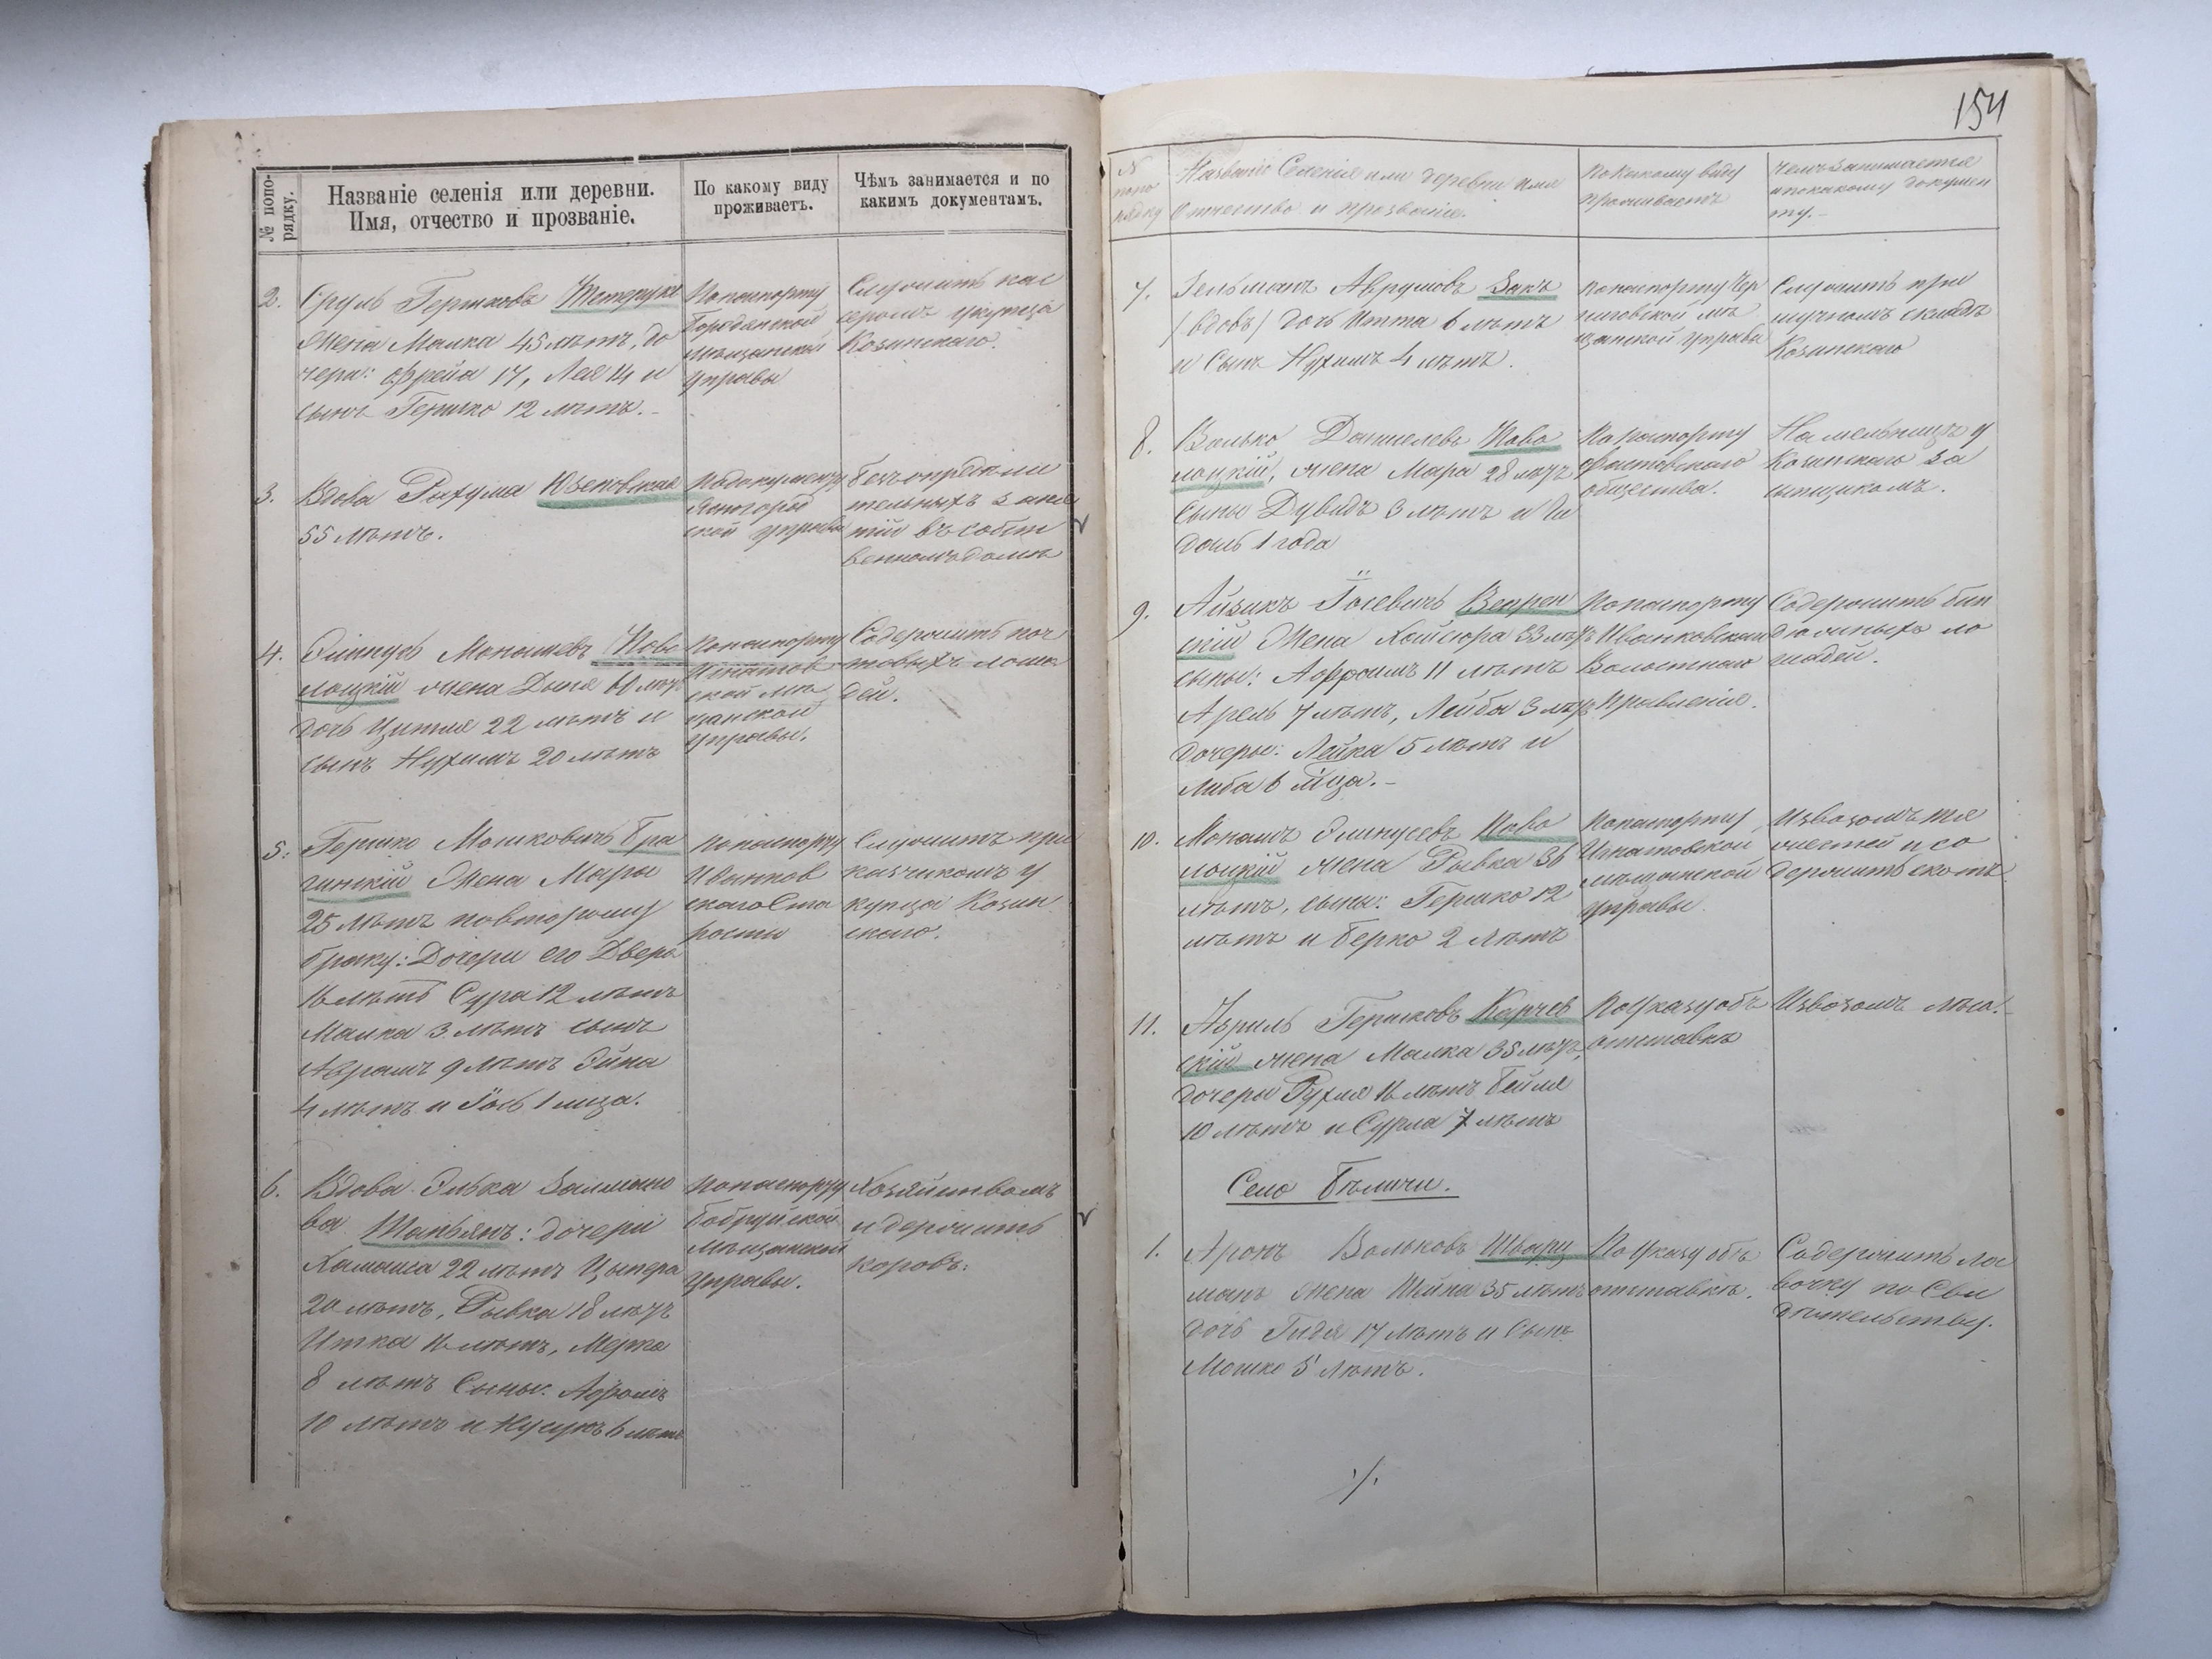 № попо-
рядку.
Названіе селенія или деревни.
Имя, отчество и прозваніе.
По какому виду
проживаетъ.
Чѣмъ занимается и по
какимъ документамъ.
2.
Сруль Гершковъ
Жена Малка 45 лѣтъ, до
чери: Фрейда 17, Лея 14 и
сынъ Гершко 12 лѣтъ.
По паспорту
Мѣщанской
Управы
Служитъ кас
сиромъ у купца
Козинскаго.
3.
Вдова Рахума
55 лѣтъ.
По документу
ской управы
Безъ опредѣли
тельныхъ заня
тій въ собст
венномъ домѣ
4.
Элинусъ Монашевъ Ново
лоцкій жена Двося 60 лѣтъ
дочь Цитля 22 лѣтъ и
сынъ Нухимъ 20 лѣтъ
По паспорту
Игнатов
ской мѣ
щанской
управы.
Содержитъ поч
товыхъ лоша
дей.
5.
Гершко Мошковичъ Бра
гинскій Жена Мары
25 лѣтъ по второму
браку: Дочери его Двера
16 лѣтъ Сура 12 лѣтъ
Малка 3 лѣтъ сынъ
Абрамъ 9 лѣтъ Эйна
4 лѣтъ и Іось 1 м-ца.
По паспорту
Иванков
скаго Ста
росты
Служитъ при
казчикомъ у
купца Козин
скаго.
6.
Вдова Элька Залмано
ва Шапьянъ: дочери
20 лѣтъ, Рывка 18 лѣтъ
Итка 16 лѣтъ, Мерка
8 лѣтъ Сыны: Афроимъ
10 лѣтъ и Нусунъ 6 лѣтъ
По паспорту
Бобруйской
Мѣщанской
Управы.
Хозяйствомъ
и держитъ
коровъ.
154
№
попо
рядку
Названіе Селенія или деревни имя
Отчество и прозваніе.
По какому виду
проживаетъ
Чемъ занимается
и по какому докумен
ту.
7.
Зельманъ Аврумовъ Закъ
/вдовъ/ дочь Итта 6 лѣтъ
и Сынъ Нухимъ 4 лѣтъ.
По паспорту Чер
ниговской мѣ
щанской управы
Служитъ при
мучномъ складѣ
Козинскаго
8.
Волько Даниелевъ Ново
лоцкій, жена Мара 28 лѣтъ
Сыны Дувидъ 3 лѣтъ и Ай
долъ 1 года
По паспорту
Фастовскаго
общества.
На мельницѣ у
Козинскаго за
сыпщикомъ.
9.
Айзикъ Іосевичъ Веприн
скій Жена Хайсюра 33 лѣтъ
сыны: Афроимъ 11 лѣтъ
Арель 7 лѣтъ, Лейба 3 лѣтъ
дочеры: Лейка 5 лѣтъ и
Либа 6 м-ца.
По паспорту
Иванковскаго
Волостного
Правленія.
Содержитъ бин
дюжныхъ ло
шадей.
10.
Монашъ Элинусевъ Ново
лоцкій жена Рывка 36
лѣтъ, сыны: Гершко 12
лѣтъ и Берко 2 лѣтъ
По паспорту
Игнатовской
мѣщанской
управы.
Извозомъ тя
жестей и со
держитъ скотъ.
11.
Абриль Гершковъ Карчев
скій жена Малка 35 лѣтъ,
дочеры Рухля 16 лѣтъ Бейля
10 лѣтъ и Сурла 7 лѣтъ
По Указу объ
отставкѣ
Извозомъ лѣса.
Село Бѣличи.
1.
Аронъ Вольковъ Шварц
манъ Жена Шейна 35 лѣтъ
дочь Гидля 17 лѣтъ и Сынъ
Мошко 5 лѣтъ.
По Указу объ
отставкѣ.
Содержитъ ла
вочку по Сви
дѣтельству.